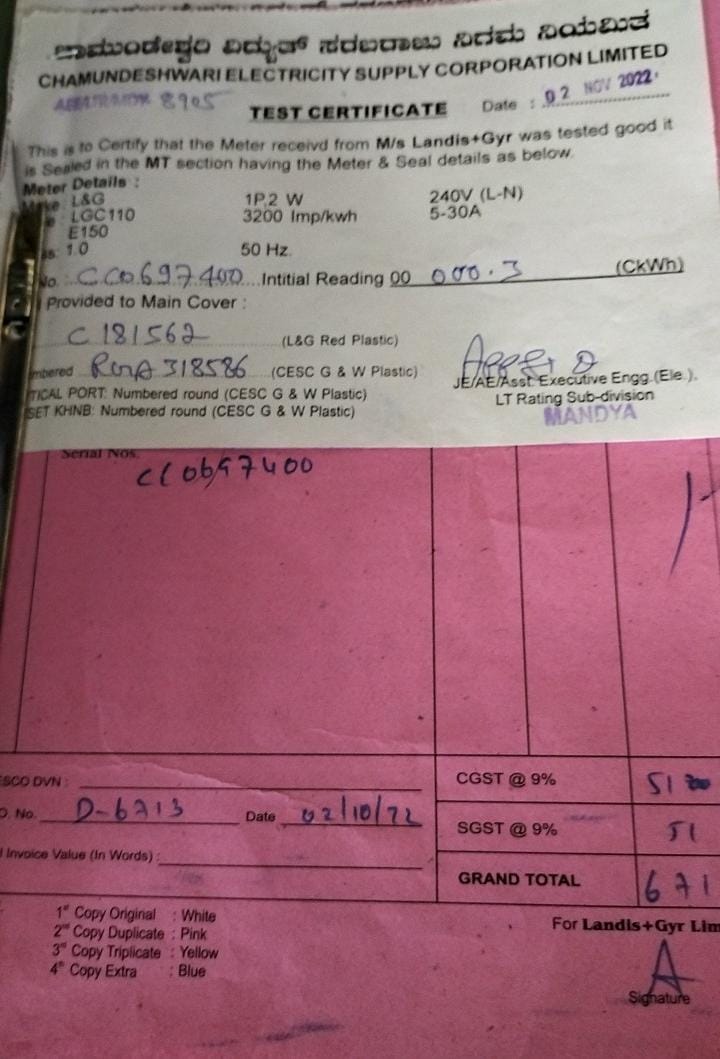 ಚಾಮುಂಡೇಶ್ವರಿ ವಿದ್ಯುತ್ ಸರಬರಾಜು ನಿಗಮ ನಿಯಮಿತ
CHAMUNDESHWARI ELECTRICITY SUPPLY CORPORATION LIMITED
8905
TEST CERTIFICATE Date : 02 NOV 2022
This is to Certify that the Meter receivd from M/s Landis+Gyr was tested good it
is Sealed in the MT section having the Meter & Seal details as below.
Meter Details :
L&G 1P,2 W 240V (L-N)
LGC110 3200 Imp/kwh 5-30A
E150
1.0 50 Hz.
No. CC0697400 Intitial Reading 00 000.3 (CkWh)
Provided to Main Cover :
C 181562 (L&G Red Plastic)
318586 (CESC G & W Plastic)
TICAL PORT: Numbered round (CESC G & W Plastic) JE/AE/Asst. Executive Engg.(Ele.).
SET KHNB: Numbered round (CESC G & W Plastic) LT Rating Sub-division
MANDYA
Serial Nos.
CC0697400
SCO DVN : CGST @ 9% 51
No. D-6713 Date 02/10/22 SGST @ 9% 51
Invoice Value (In Words) : GRAND TOTAL 671
1st Copy Original : White For Landis+Gyr Lim
2nd Copy Duplicate : Pink
3rd Copy Triplicate : Yellow
4th Copy Extra : Blue
Signature